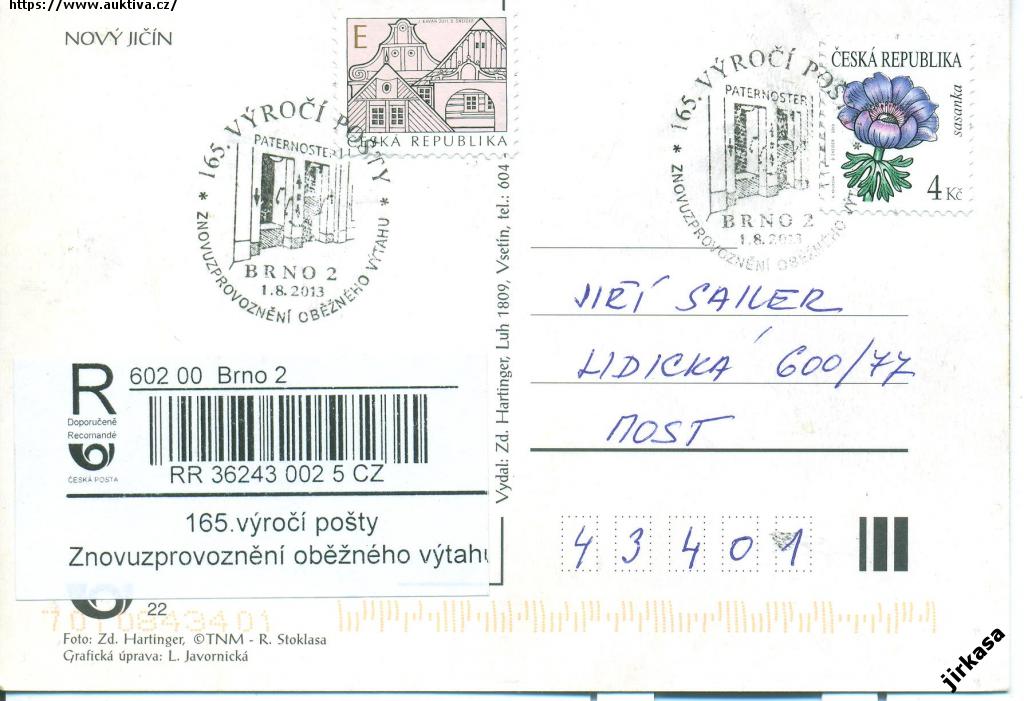 https://www.auktiva.cz/
NOVÝ JIČÍN
E
J. KAVAN 2011 B. ŠNEIDER
ČESKÁ REPUBLIKA
165. VÝROČÍ POŠTY
PATERNOSTER
BRNO 2
1.8.2013
* ZNOVUZPROVOZNĚNÍ OBĚŽNÉHO VÝTAHU *
ČESKÁ REPUBLIKA
sasanka
4 Kč
* 165. VÝROČÍ POŠTY
PATERNOSTER
BRNO 2
1.8.2013
ZNOVUZPROVOZNĚNÍ OBĚŽNÉHO VÝT
Vydal: Zd. Hartinger, Luh 1809, Vsetín, tel.: 604
JIŘÍ SAILER
LIDICKÁ 600/77
MOST
43401
R 602 00 Brno 2
Doporučeně
Recomandé
ČESKÁ POSTA
RR 36243 002 5 CZ
165.výročí pošty
Znovuzprovoznění oběžného výtahu
22
7010843401
Foto: Zd. Hartinger, ©TNM - R. Stoklasa
Grafická úprava: L. Javornická
jirkasa